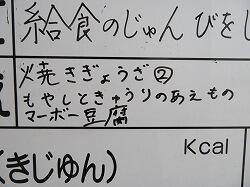 給食のじゅんびをし
焼きぎょうざ②
もやしときゅうりのあえもの
マーボー豆腐
Kcal
(きじゅん)